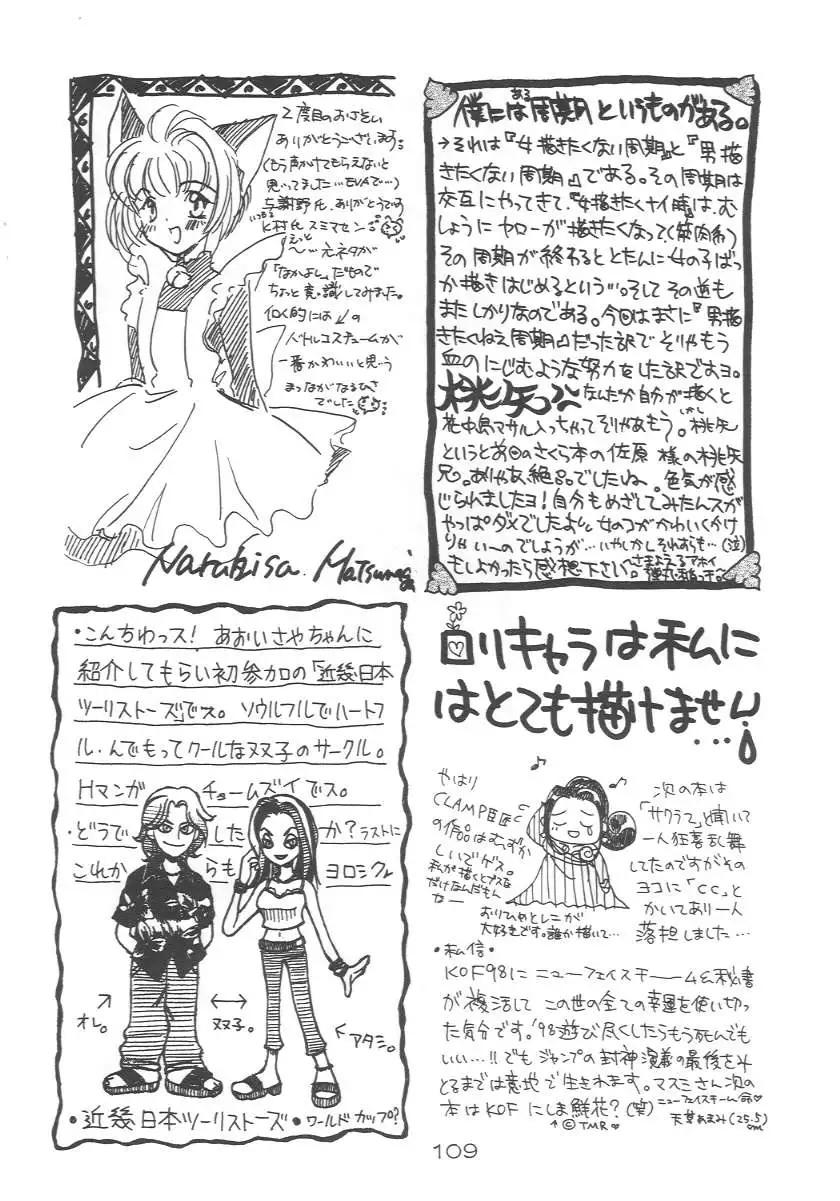 2度目のおさそい
ありがとうございます。
(もう声かけてもらえないと
思ってました…EVAで…)
与謝野氏、ありがとうです
いつも
K村氏 スミマセン
えっと
〜…元ネタが
「なかよし」だもので
ちょっと意識してみました。
個人的には
バトルコスチュームが
一番かわいいと思う
まつながなるひさ
でした
Naruhisa. Matsunaga
ある
僕には周期というものがある。
→それは『女描きたくない周期』と『男描
きたくない周期』である。その周期は
交互にやってきて、『女描きたくナイ時』は、む
しょうにヤローが描きたくなって(筋肉系)
その周期が終わるととたんに女の子ばっ
か描きはじめるという…。そしてその逆も
またしかりなのである。今回はまさに『男描
きたくねえ周期』だった訳でそりゃもう
血のにじむような努力をした訳ですヨ。
桃矢っ なんだか自分が描くと
花中島マサル入っちゃってそりゃあもう。しかし桃矢
というと前回のさくら本の佐原様の桃矢
兄。ありゃあ、絶品でしたね。色気が感
じられましたヨ!自分もめざしてみたんスが
やっぱダメでしたよ。女のコがかわいくかけ
りゃい〜のでしょうが…いやしかしそれすらも…(泣)
もしよかったら感想下さい。さまよえるアホイ
・こんちわっス! あおいさやちゃんに
紹介してもらい初参加の「近畿日本
ツーリストーズ」でス。ソウルフルでハートフ
ル・んでもってクールな双子のサークル。
Hマンガ チョームズイでス。
・どうで した か?ラストに
これか らも ヨロシク
オレ。
双子。
アタシ。
・近畿日本ツーリストーズ・ワールドカップ?
ロリキャラは私に
はとても描けません
…
やはり
CLAMP巨匠
の作品はむずか
しいでゲス。
私が描くとブスな
だけなんだもん
なー
おりひめとレニが
大好きです。誰か描いて…
次の本は
「サクラ2」と聞いて
一人狂喜乱舞
してたのですがその
ヨコに「CC」と
かいてあり一人
落担しました…
・私信・
KOF98にニューフェイスチーム&秘書
が復活してこの世の全ての幸運を使い切っ
た気分です。'98遊び尽くしたらもう死んでも
いい…!!でもジャンプの封神演義の最後をみ
とるまでは意地で生きれます。マスミさん次の
本はKOFにしま鮮花?(笑)ニューフェイスチーム命♡
↑©TMR♡
天草あまみ(25.5)
om
109